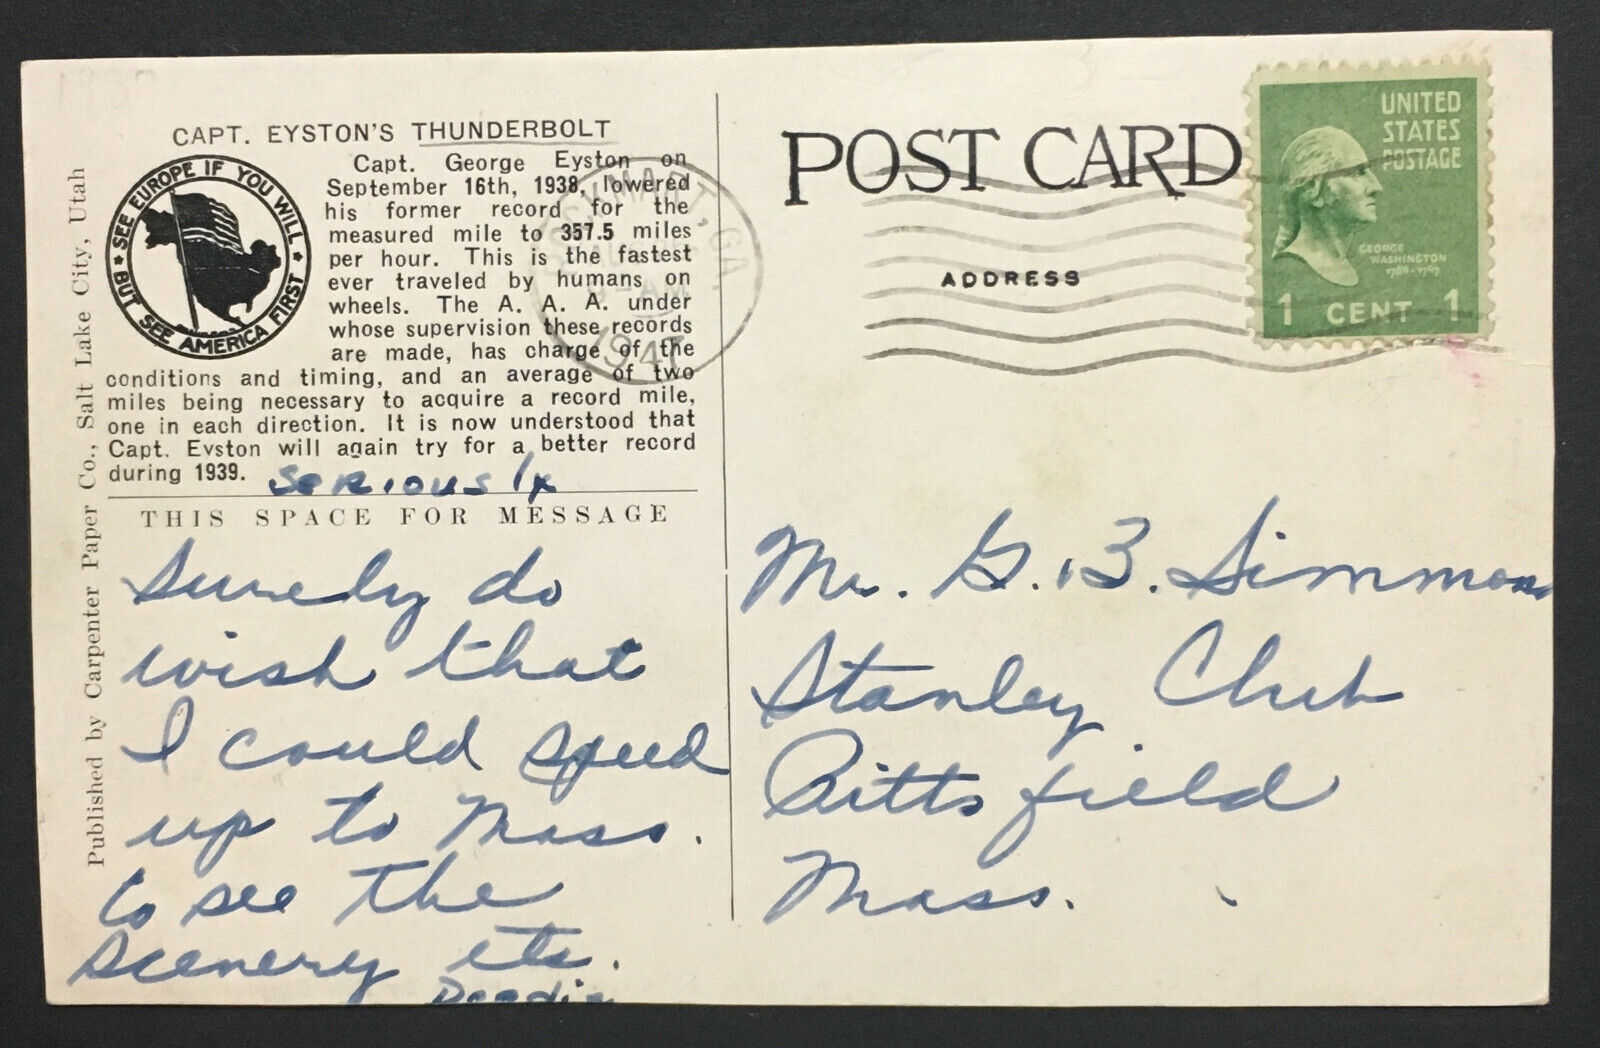 CAPT. EYSTON'S THUNDERBOLT
Capt. George Eyston on
September 16th, 1938, lowered
his former record for the
measured mile to 357.5 miles
per hour. This is the fastest
ever traveled by humans on
wheels. The A. A. A. under
whose supervision these records
are made, has charge of the
conditions and timing, and an average of two
miles being necessary to acquire a record mile,
one in each direction. It is now understood that
Capt. Evston will again try for a better record
during 1939.
SEE EUROPE IF YOU WILL
BUT SEE AMERICA FIRST
Published by Carpenter Paper Co., Salt Lake City, Utah
seriously
THIS SPACE FOR MESSAGE
Surely do
wish that
I could speed
up to Mass.
to see the
scenery etc.
POST CARD
ADDRESS
GA.
AM
1947
UNITED
STATES
POSTAGE
GEORGE
WASHINGTON
1789-1797
1 CENT 1
Mr. G. B. Simmons
Stanley Club
Pittsfield
Mass.